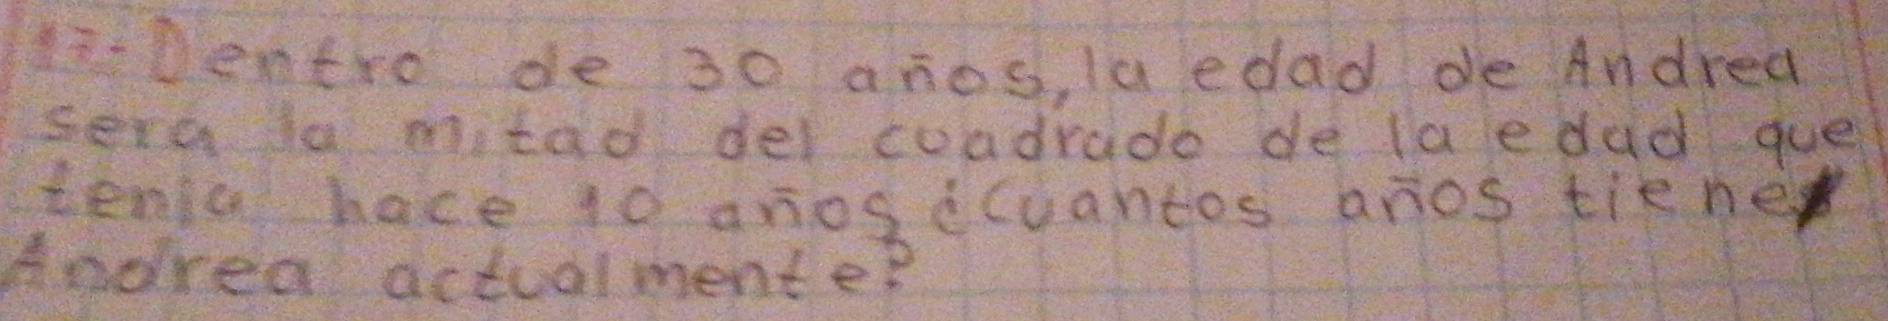 17-Dentro de 30 años, la edad de Andrea
sera la mitad del cuadrado de la edad que
tenia hace 10 años ¿Cuantos años tiene
Andrea actualmente?